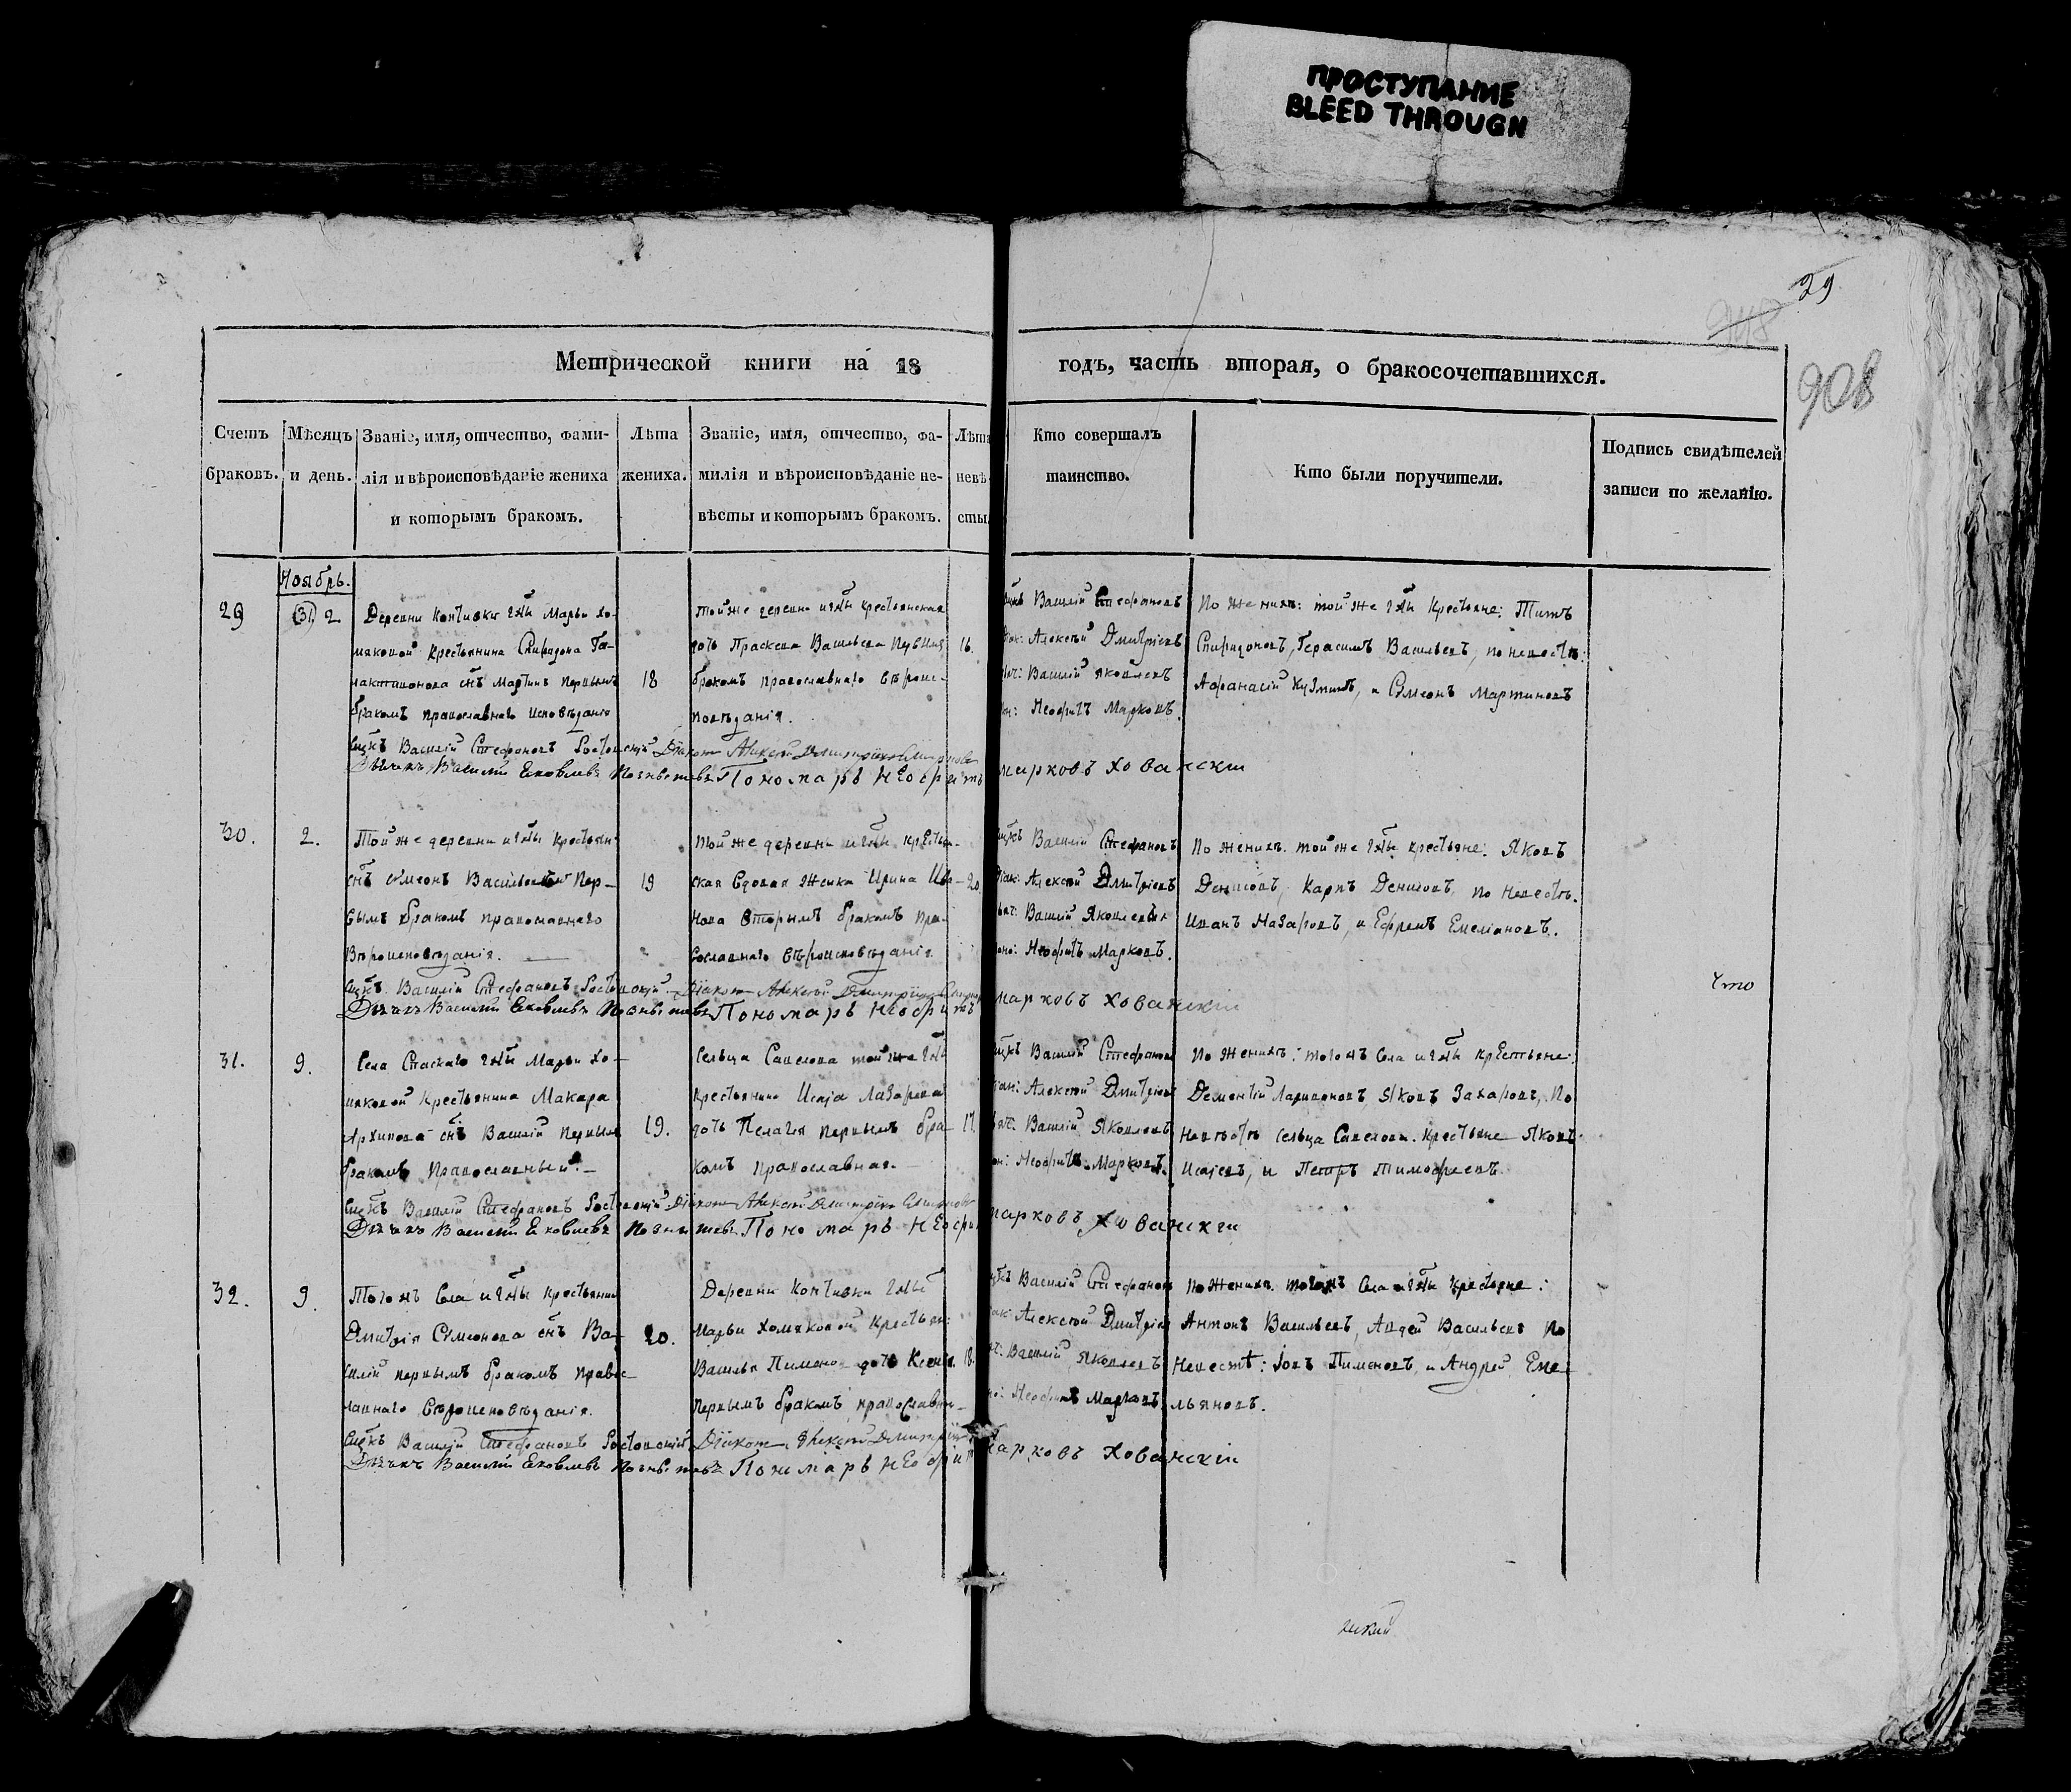 ПРОСТУПАНИЕ
BLEED THROUGH
29
908
Метрической книги на 18 годъ, часть вторая, о бракосочетавшихся.
Счетъ браковъ.
Мѣсяцъ и день.
Званіе, имя, отчество, фами-
лія и вѣроисповѣданіе жениха
и которымъ бракомъ.
Лѣта
жениха.
Званіе, имя, отчество, фа-
милія и вѣроисповѣданіе не-
вѣсты и которымъ бракомъ.
Лѣта
невѣ
сты
Кто совершалъ
таинство.
Кто были поручители.
Подпись свидѣтелей
записи по желанію.
Ноябрь.
29
2
Деревни гжи Марьи Хо-
мяковой Крестьянина Спиридона Га-
лактионова снъ Мартинъ первымъ
бракомъ православнаго исповѣданія
18
Той же деревни и гжи крестьянская
дочь Праскева Васильева первымъ
бракомъ православнаго вѣроис-
повѣданія.
16.
Василій Стефановъ
Алексѣй Дмитріевъ
Василій Яковлевъ
Неофитъ Марковъ.
По женихѣ: той же гжи Крестьяне: Титъ
Спиридоновъ, Герасимъ Васильевъ, по невестѣ:
Афанасій Кузминъ, и Симеонъ Мартиновъ
Сщкъ Василій Стефановъ Ростовскій Діаконъ Алексѣй Дмитріевъ
Дьячекъ Василій Яковлевъ Пономарь Неофитъ Марковъ Хованскій
30.
2.
Той же деревни и гжи крестьян:
снъ Симеонъ Васильевъ пер-
вымъ бракомъ православнаго
Вѣроисповѣданія.
19
Той же деревни и гжи кресть
ская вдовая женка Ирина Ива-
нова вторымъ бракомъ пра-
вославнаго вѣроисповѣданія
20.
Василій Стефановъ
Алексѣй Дмитріевъ
Василій Яковлевъ
Неофитъ Марковъ.
По женихѣ. той же гжи крестьяне: Яковъ
Денисовъ, Карпъ Денисовъ, по невестѣ.
Иванъ Назаровъ, и Ефремъ Емеліановъ.
Сщкъ Василій Стефановъ Ростовскій Діаконъ Алексѣй Дмитріевъ
Дьячекъ Василій Яковлевъ Пономарь Неофитъ Марковъ Хованскій
Что
31.
9.
Села Спаскаго гжи Марьи Хо-
мяковой Крестьянина Макара
Архипова снъ Василій первымъ
бракомъ Православный.
19.
Сельца Савелова той же гжи
крестьянина Исаія Лазарева
дочь Пелагея первымъ бра
комъ православная.
17.
Василій Стефановъ
Алексѣй Дмитріевъ
Василій Яковлевъ
Неофитъ Марковъ
По женихѣ: тогожъ села и гжи крестьяне:
Дементій Ларионовъ, Яковъ Захаровъ, По
невѣстѣ сельца Савелова. крестьяне Яковъ
Исаіевъ, и Петръ Тимофеевъ.
Сщкъ Василій Стефановъ Ростовскій Діаконъ Алексѣй Дмитріевъ
Дьячекъ Василій Яковлевъ Пономарь Неофитъ Марковъ Хованскій
32.
9.
Тогожъ села и гжи крестьянина
Дмитрія Симеонова снъ Ва-
силій первымъ бракомъ право-
славнаго вѣроисповѣданія.
20.
Деревни гжи
Марьи Хомяковой Крестьян:
Василья Пимено дочь Ксенія
первымъ бракомъ православн
18.
Василій Стефановъ
Алексѣй Дмитріевъ
Василій Яковлевъ
Неофитъ Марковъ
По женихѣ. тогожъ села и гжи крестьяне:
Антонъ Васильевъ, Авдей Васильевъ по
невестѣ: Іовъ Пименовъ, и Андрей Еме-
льяновъ.
Сщкъ Василій Стефановъ Ростовскій Діаконъ Алексѣй Дмитріевъ
Дьячекъ Василій Яковлевъ Пономарь Неофитъ Марковъ Хованскій